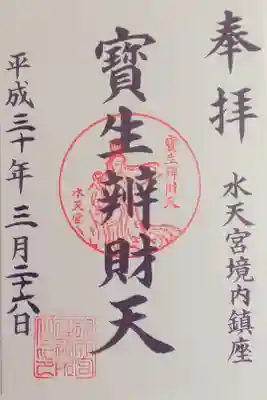 奉拝
水天宮境内鎮座
寶生辨財天
寶生辨財天
水天宮
平成三十年三月二十六日